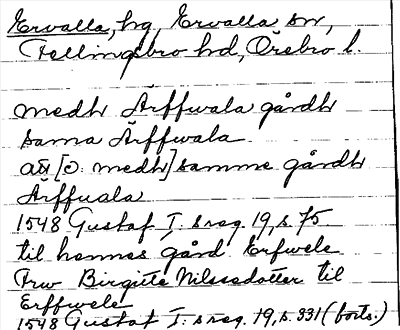 Ervalla, hg, Ervalla sn,
Fellingsbro hd, Örebro l.
medh Ärffwala gårdh
sama Ärffwala
aff [o. medh] samme gårdh
Ärffuala
1548 Gustaf I: s reg. 19, s. 75
til hennes gård Erfwele
Frw Birgitte Nilssedotter til
Erffwele
1548 Gustaf I: s reg. 19, s. 331 (forts.)